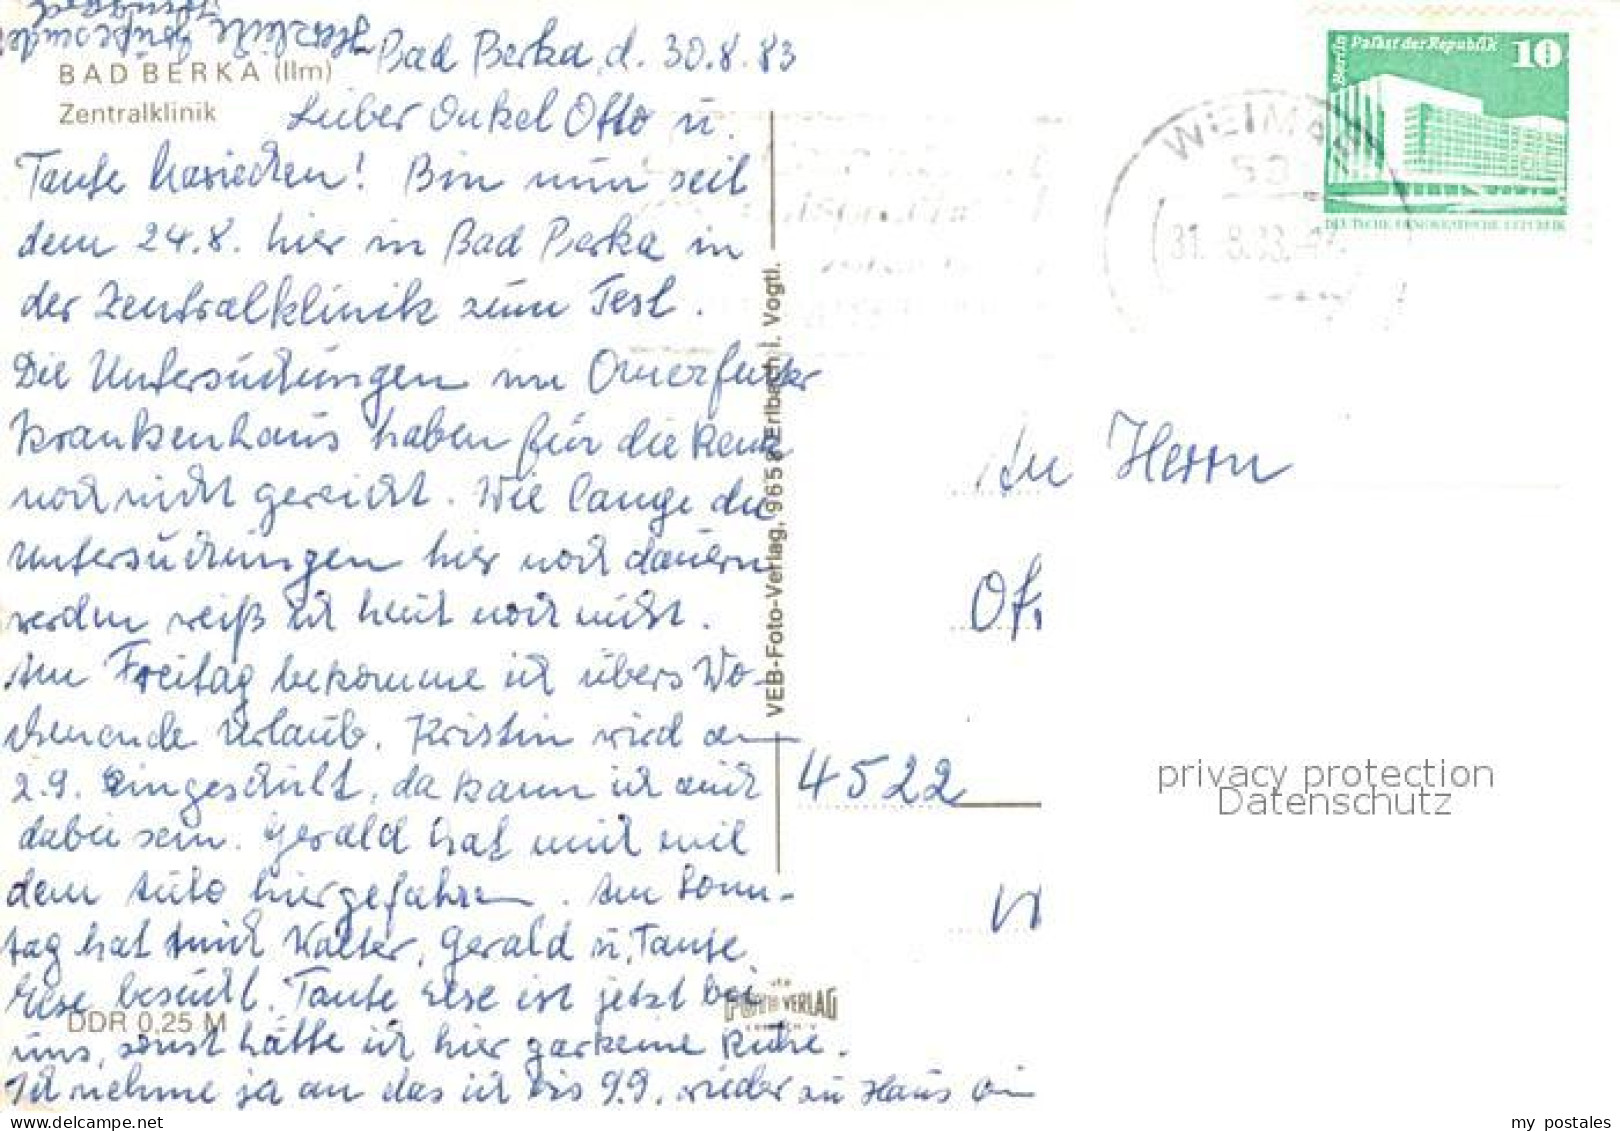 Herzliche
BAD BERKA (Ilm)
Zentralklinik
Bad Berka, d. 30.8.83
Lieber Onkel Otto u.
Tante Mariechen! Bin nun seit
dem 24.8. hier in Bad Berka in
der Zentralklinik zum Test.
Die Untersuchungen im
Krankenhaus haben für die Rente
noch nicht gereicht. Wie lange die
Untersuchungen hier noch dauern
werden weiß ich heut noch nicht.
Am Freitag bekomme ich übers Wo-
chenende Urlaub. Kristin wird am
2.9. eingeschult, da kann ich mit
dabei sein. Gerald hat mich mit
dem Auto hiergefahren. Am Sonn-
tag hat mich Walter, Gerald u. Tante
Else besucht. Tante Else ist jetzt bei
uns, sonst hätte ich hier gar keine Ruhe.
Ich nehme ja an das ich bis 9.9. wieder zu Haus bin
DDR 0,25 M
VEB-Foto-Verlag, 9658 Erlbach i. Vogtl.
FOTO VERLAG
Berlin Palast der Republik 10
DEUTSCHE DEMOKRATISCHE REPUBLIK
WEIMAR
53
31. 8.83
An Herrn
4522
privacy protection
Datenschutz
my postales